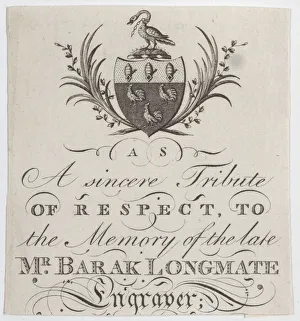 AS
A sincere Tribute
OF RESPECT, TO
the Memory of the late
MR. BARAK LONGMATE
Engraver;